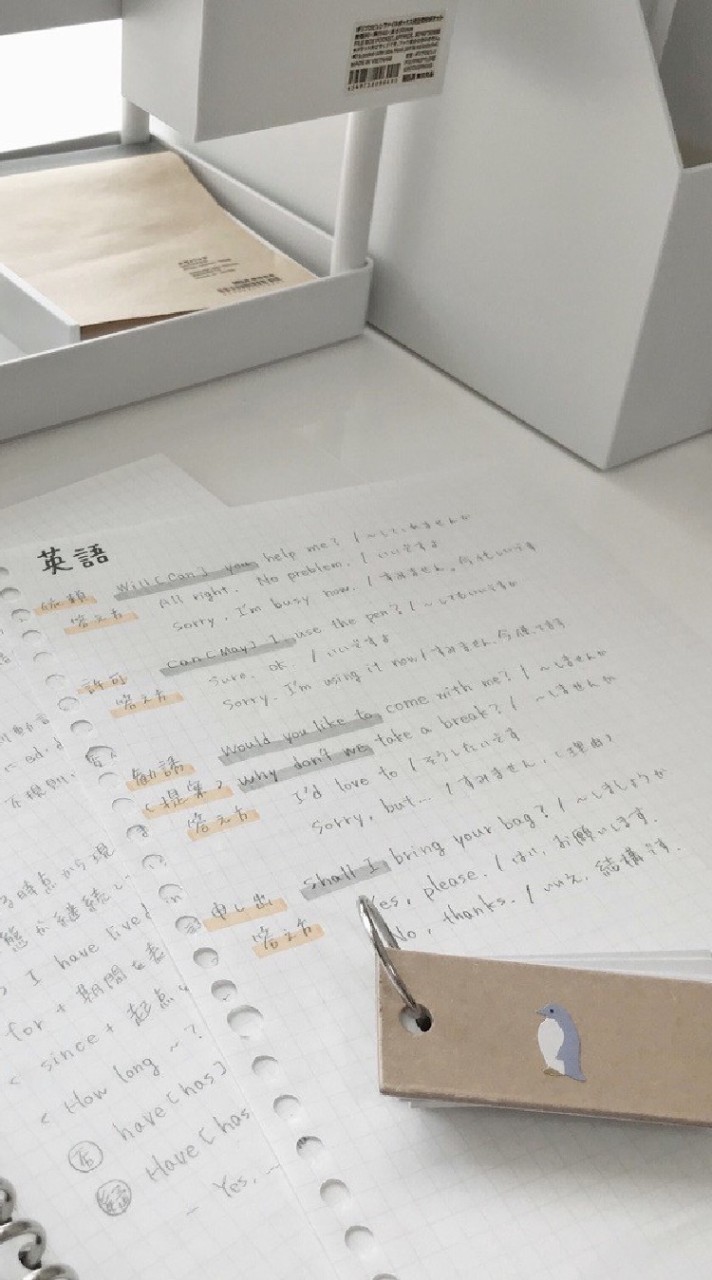 英語
依頼 Will[Can] you help me? / ~していれませんか
答え方 All right. No problem. / いいですよ
Sorry, I'm busy now. / すみません。今忙しいです
許可 Can[May] I use the pen? / ~してもいいですか
答え方 Sure. OK. / いいですよ
Sorry. I'm using it now / すみません。今使ってます
勧誘 Would you like to come with me? / ~しませんか
(提案) Why don't we take a break? / ~しませんか
答え方 I'd love to / そうしたいです
Sorry, but... / すみません、(理由)
申し出 Shall I bring your bag? / ~しましょうか
答え方 Yes, please. / はい、お願いします.
No, thanks. / いいえ、結構です.
時点から現
態が継続し
I have lived
for + 期間を表
< since + 起点
< How long ~ ?
否 have[has]
疑 Have[has
- Yes, ~